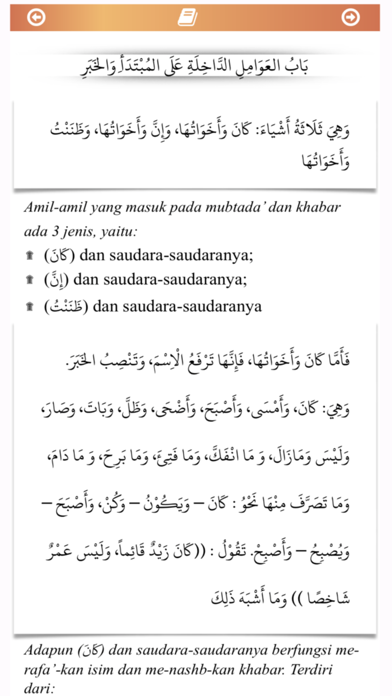 بَابُ العَوَامِلِ الدَّاخِلَةِ عَلَى المُبْتَدَأِ وَالخَبَرِ
وَهِيَ ثَلَاثَةُ أَشْيَاءَ: كَانَ وَأَخَوَاتُهَا، وَإِنَّ وَأَخَوَاتُهَا، وَظَنَنْتُ
وَأَخَوَاتُهَا
Amil-amil yang masuk pada mubtada’ dan khabar
ada 3 jenis, yaitu:
(كَانَ) dan saudara-saudaranya;
(إِنَّ) dan saudara-saudaranya;
(ظَنَنْتُ) dan saudara-saudaranya
فَأَمَّا كَانَ وَأَخَوَاتُهَا، فَإِنَّهَا تَرْفَعُ الْاِسْمَ، وَتَنْصِبُ الخَبَرَ.
وَهِيَ: كَانَ، وَأَمْسَى، وَأَصْبَحَ، وَأَضْحَى، وَظَلَّ، وَبَاتَ، وَصَارَ،
وَلَيْسَ وَمَازَالَ، وَ مَا انْفَكَّ، وَمَا فَتِئَ، وَمَا بَرِحَ، وَ مَا دَامَ،
وَمَا تَصَرَّفَ مِنْهَا نَحْوُ : كَانَ – وَيَكُوْنُ – وَكُنْ، وَأَصْبَحَ –
وَيُصْبِحُ – وَأَصْبِحْ. تَقُوْلُ : ((كَانَ زَيْدٌ قَائِماً، وَلَيْسَ عَمْرٌ
شَاخِصًا )) وَمَا أَشْبَهَ ذَلِكَ
Adapun (كَانَ) dan saudara-saudaranya berfungsi me-
rafa’-kan isim dan me-nashb-kan khabar. Terdiri
dari: